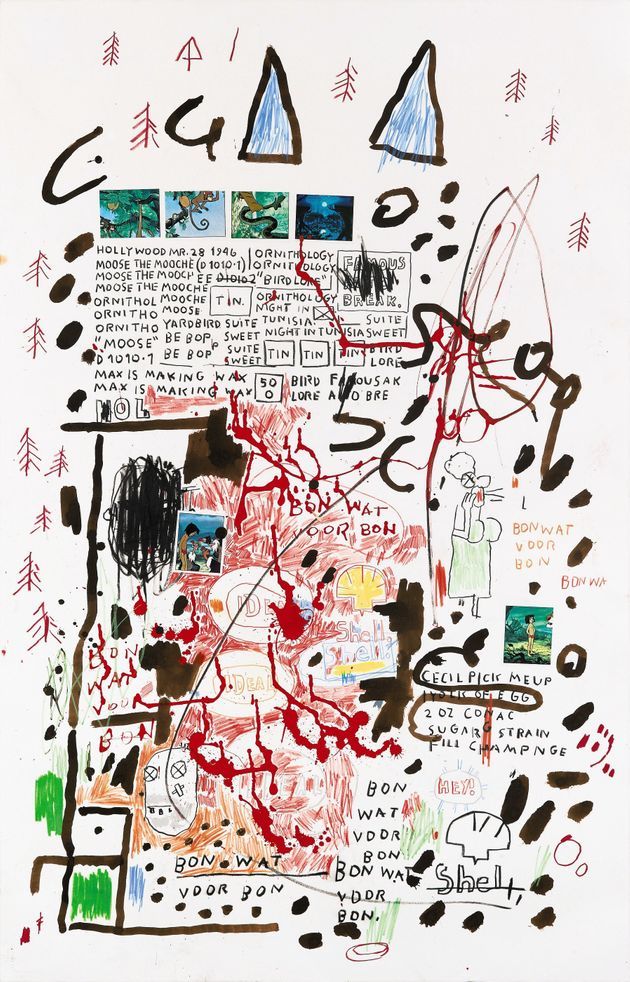 HOLLYWOOD MR. 28 1946
MOOSE THE MOOCHE (D 1010·1)
MOOSE THE MOOCHEE D1010 2
MOOSE THE MOOCHE
ORNITHOL MOOCHE
ORNITHO MOOSE
ORNITHO YARDBIRD SUITE
"MOOSE" BE BOP SWEET
D 1010·1 BE BOP SUITE SWEET
ORNITHOLOGY
ORNITHOLOGY
"BIRD LORE"
TIN.
ORNITHOLOGY
NIGHT IN
TUNISIA
SUITE
NIGHT IN TUNISIA SWEET
TIN
TIN
TIN
BIRD
LORE
FAMOUS
BREAK.
MAX IS MAKING WAX
MAX IS MAKING WAX
50
0
BIRD FAMOUS AK
LORE AND BRE
HOL
BON WAT
VOOR BON
BON WAT
VOOR
BON
BON WA
IDEAL
Shell.
Shell.
IDEAL
BON
WAT
VOUR
BON
CECIL PICK ME UP
EGG
2 OZ CONAC
SUGAR STRAIN
FILL CHAMPNGE
HEY!
BON
WAT
VOOR
BON
BON WAT
VOOR
BON.
BON WAT
VOOR BON
Shell